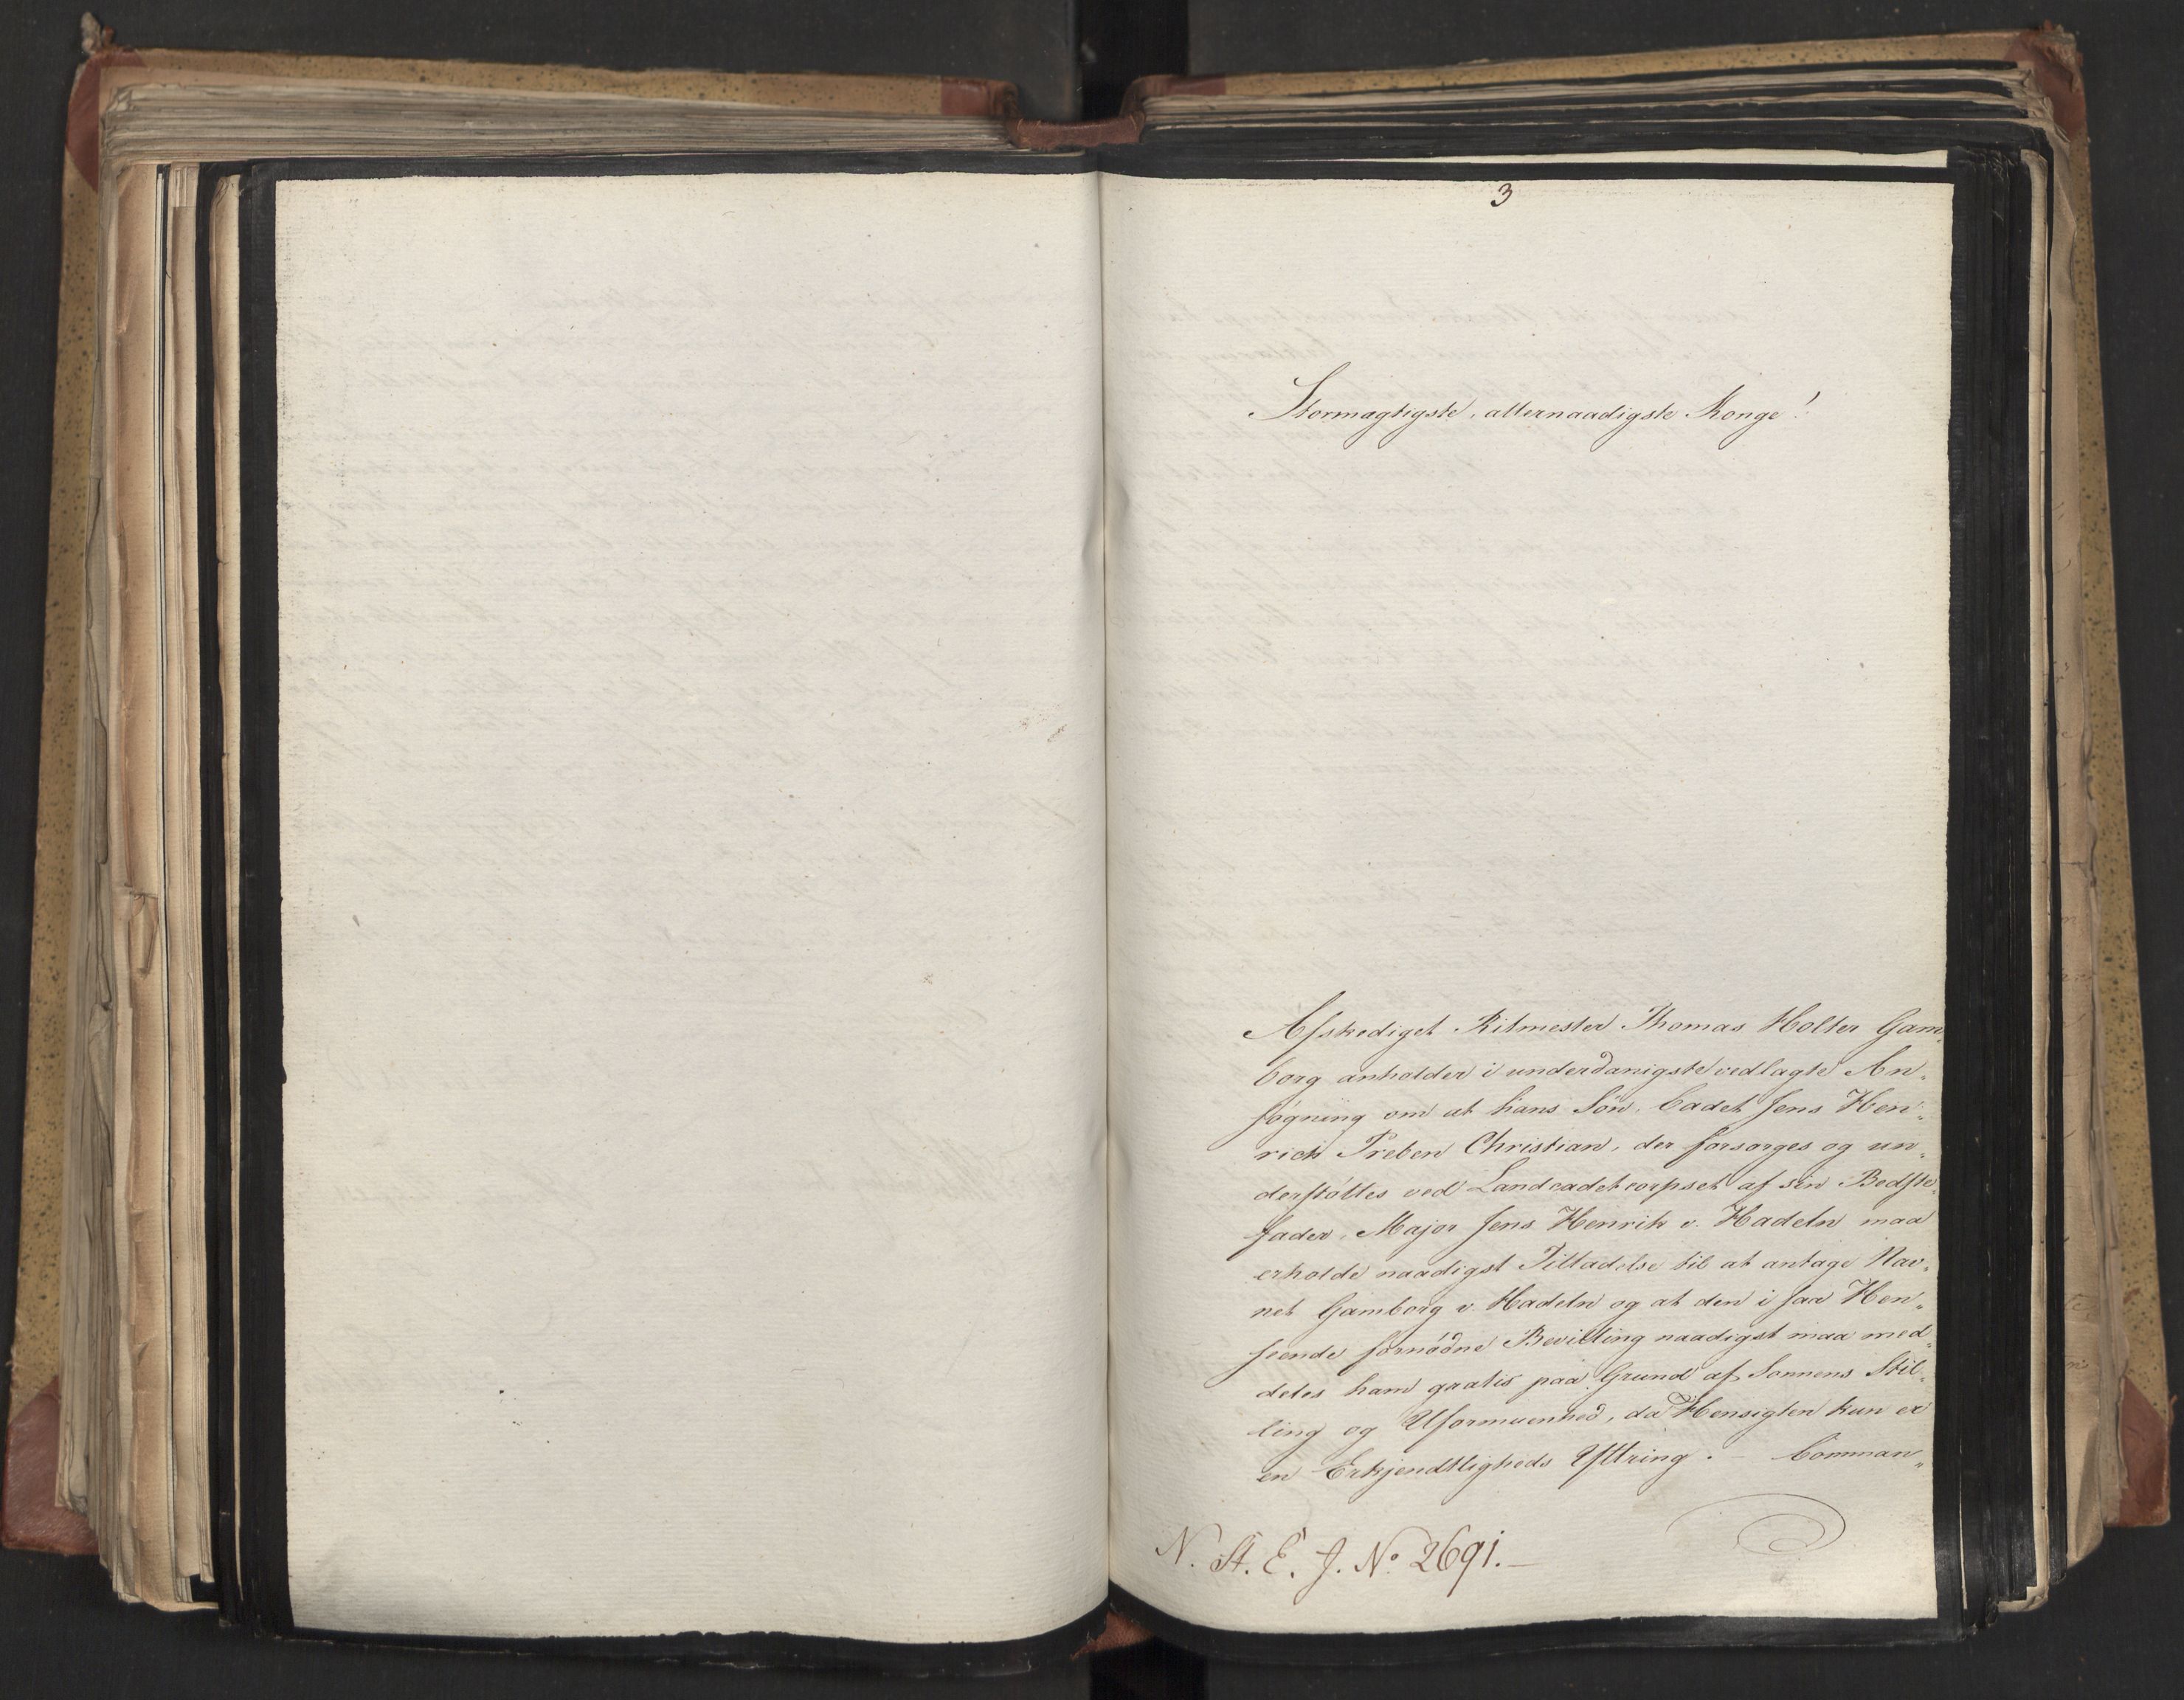 3
Stormagtigste, allernaadigste Konge!
Afskediget Ritmester Thomas Holter Gam„
borg anholder i underdanigste vedlagte An„
søgning om at hans Søn, Cadet Jens Hen„
rich Preben Christian, der forsorges og un„
derstøttes ved Landcadetcorpset af sin Bedste„
fader, Major Jens Henrik v. Hadeln maa
erholde naadigst Tilladelse til at antage Nav„
net Gamborg v. Hadeln og at den i saa Hen„
seende fornødne Bevilling naadigst maa med„
deles ham gratis paa Grund af Sønnens Stil„
ling og Uformuenhed, da Hensigten kun er
en Erkjendtligheds Yttring. – Comman„
N. St. E. J. No. 2691.–